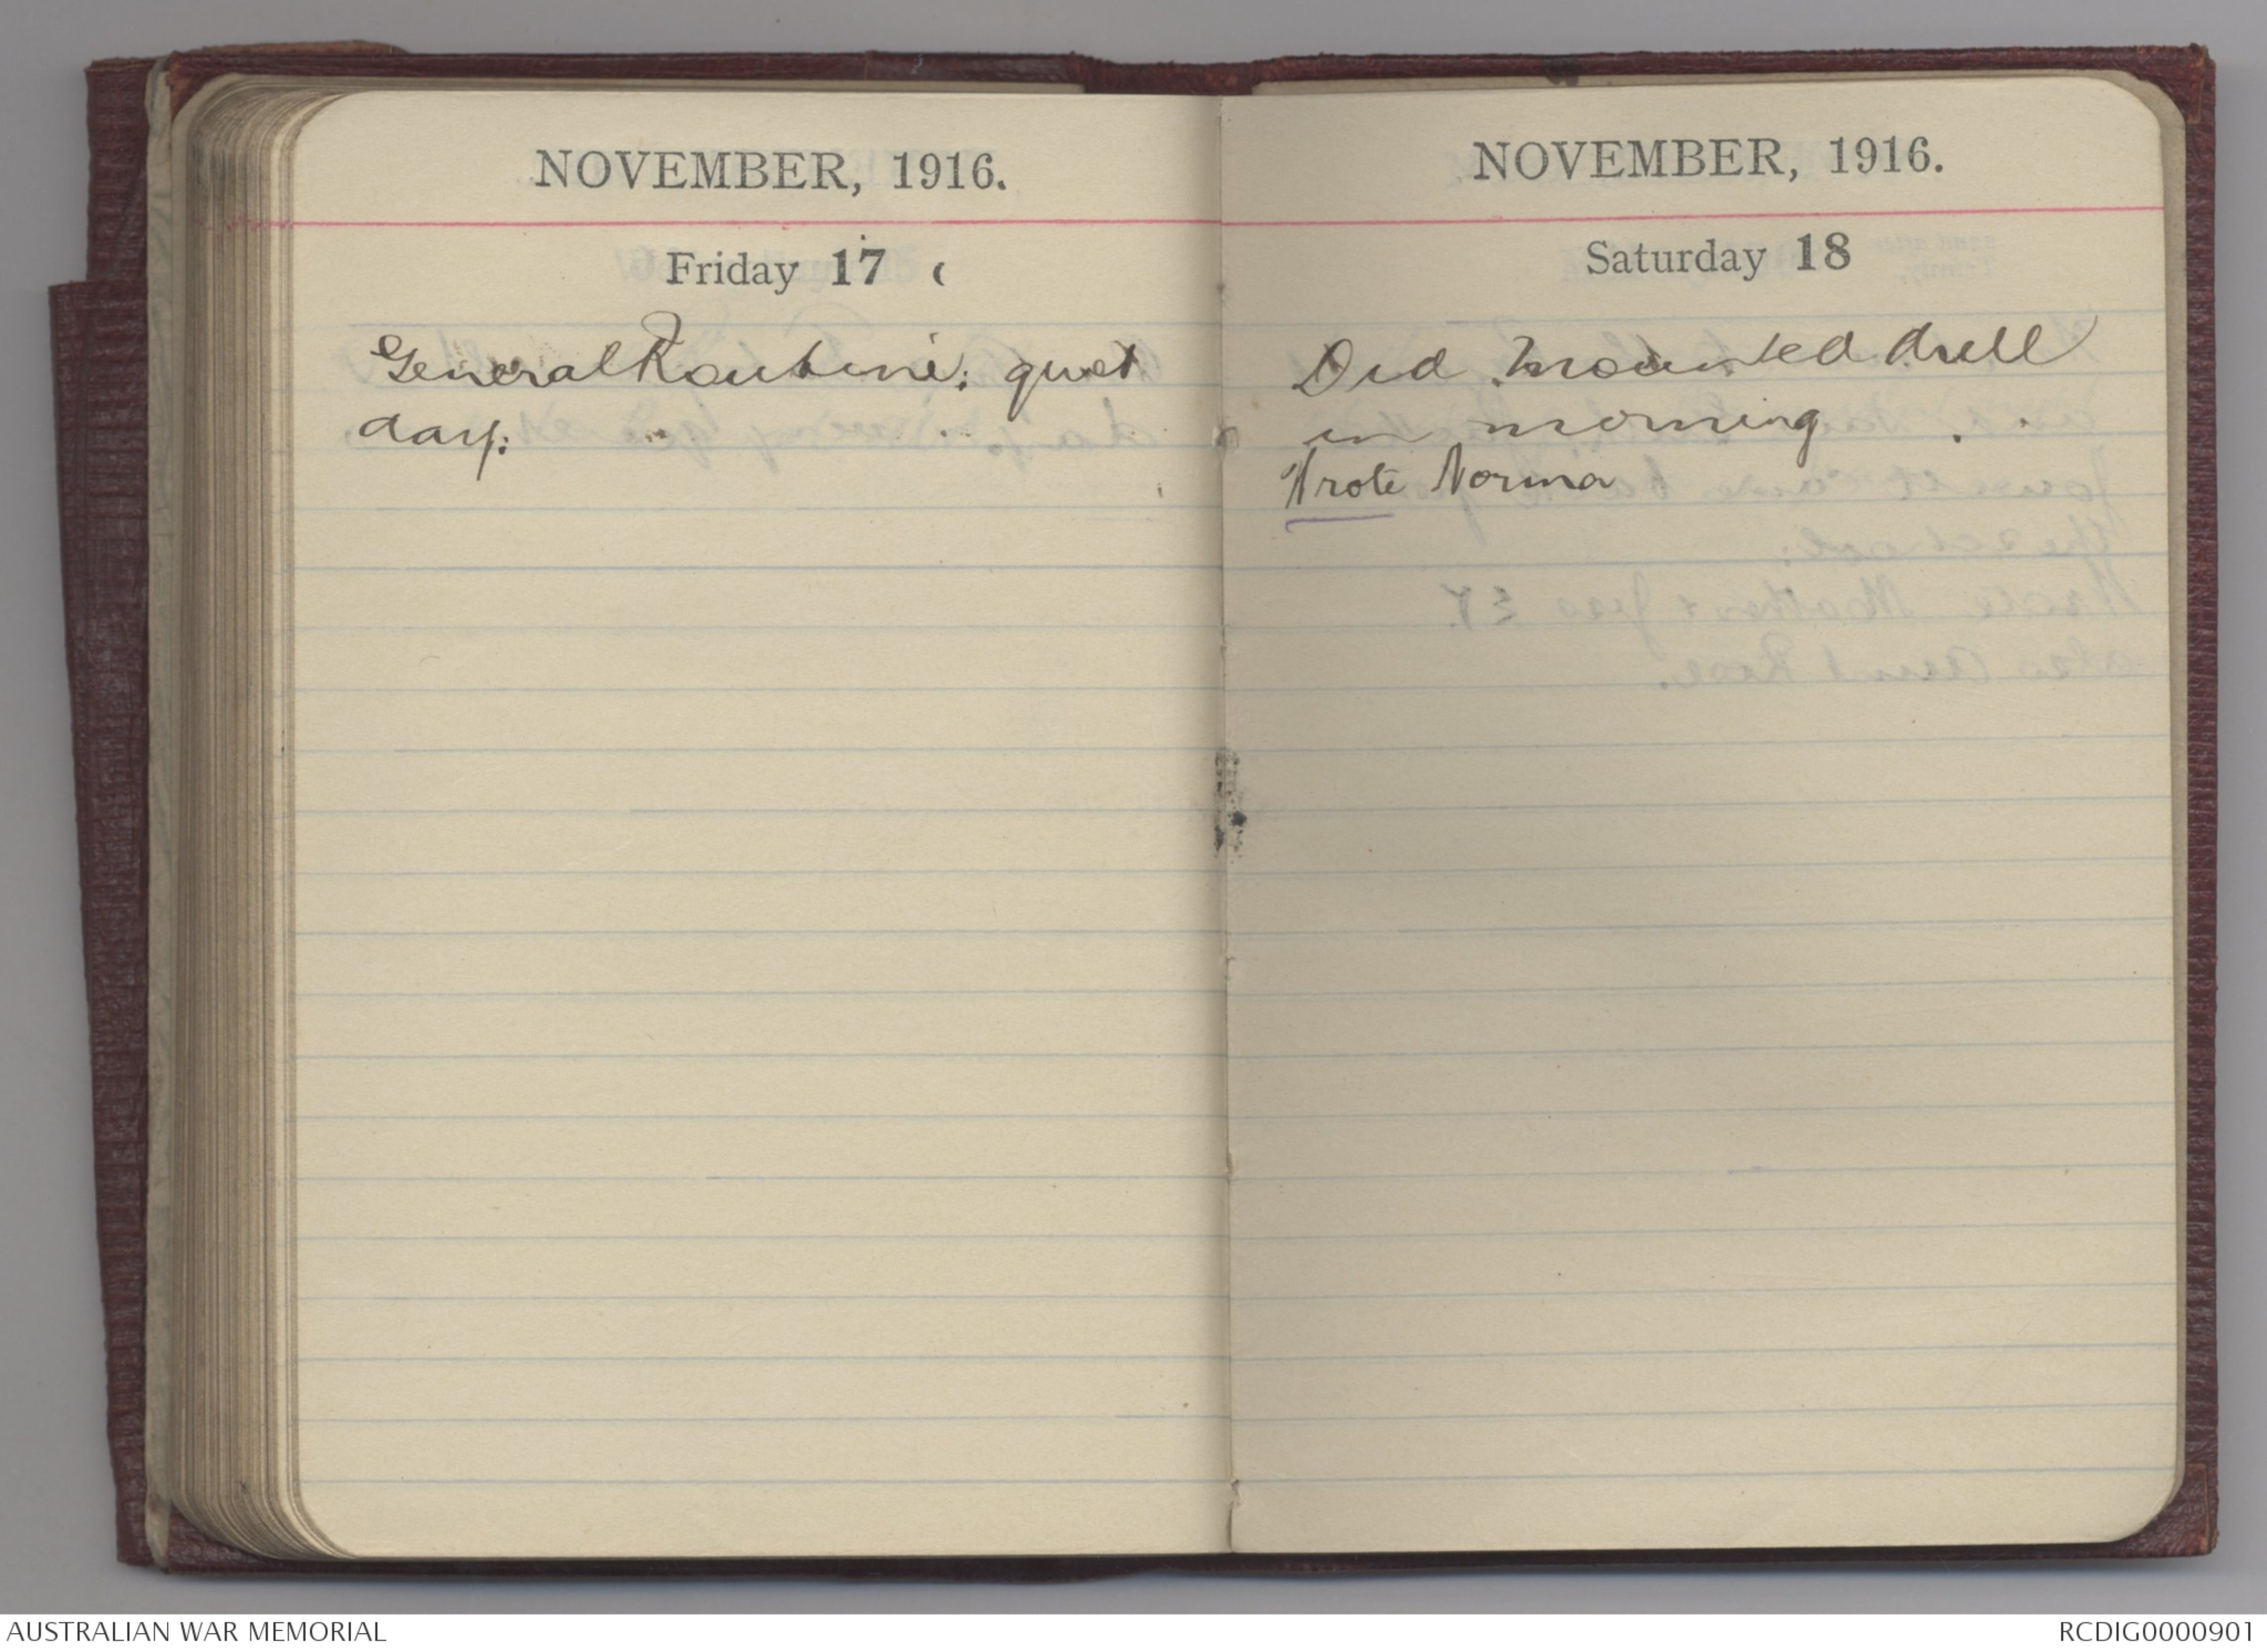 NOVEMBER, 1916.
Friday 17
General Routine; quiet
day;
NOVEMBER, 1916.
Saturday 18
Did mounted drill
in morning.
Wrote Norma
AUSTRALIAN WAR MEMORIAL
RCDIG0000901